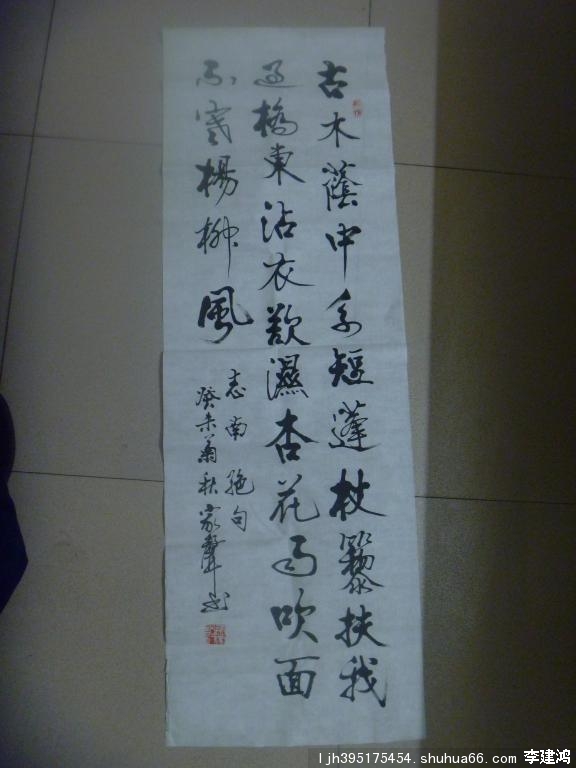 古木蔭中系短蓬杖藜扶我
過橋東沾衣欲濕杏花雨吹面
不寒楊柳風
志南絶句
癸未菊秋家聲书
ljh395175454.shuhua66.com 李建鸿